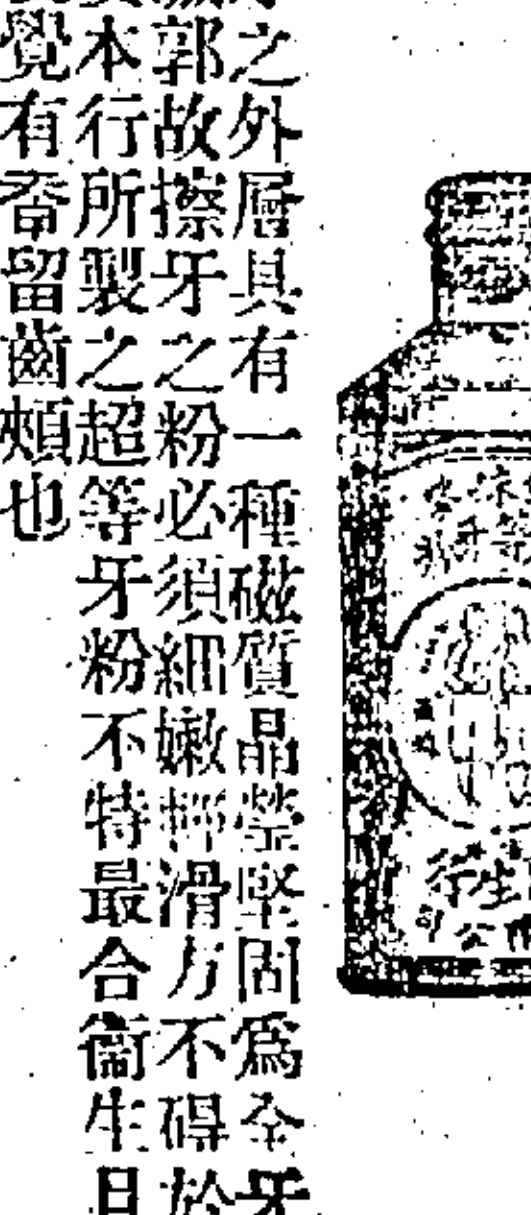 之外層具有一種磁質晶瑩堅固爲全牙
郭故擦牙之粉必須細嫩輕滑方不碍於
本行所製之超等牙粉不特最合衞生且
覺有香留齒頰也
行生
司公